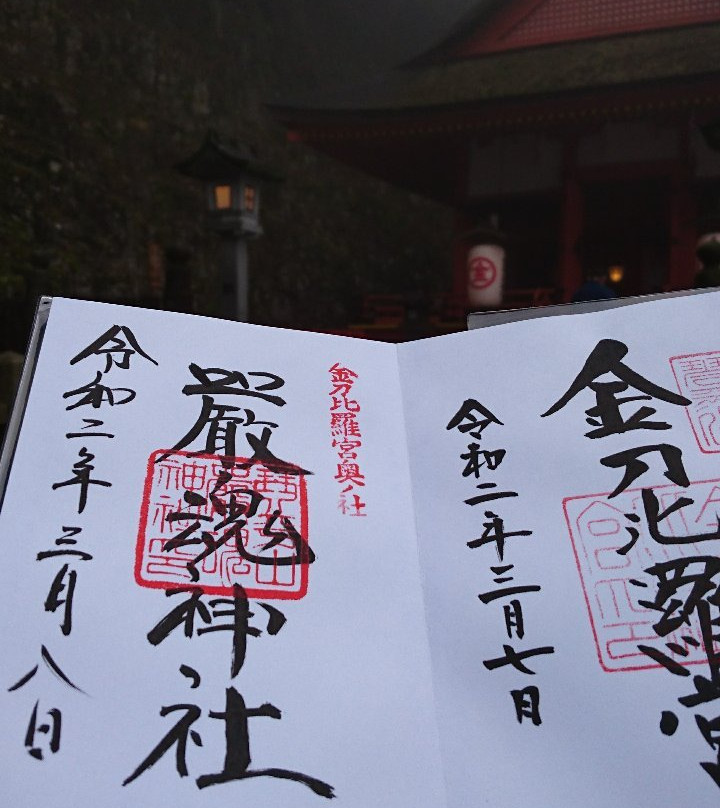 金
金刀比羅堂
令和二年三月七日
金刀比羅宮奥ノ社
嚴魂神社
令和二年三月八日